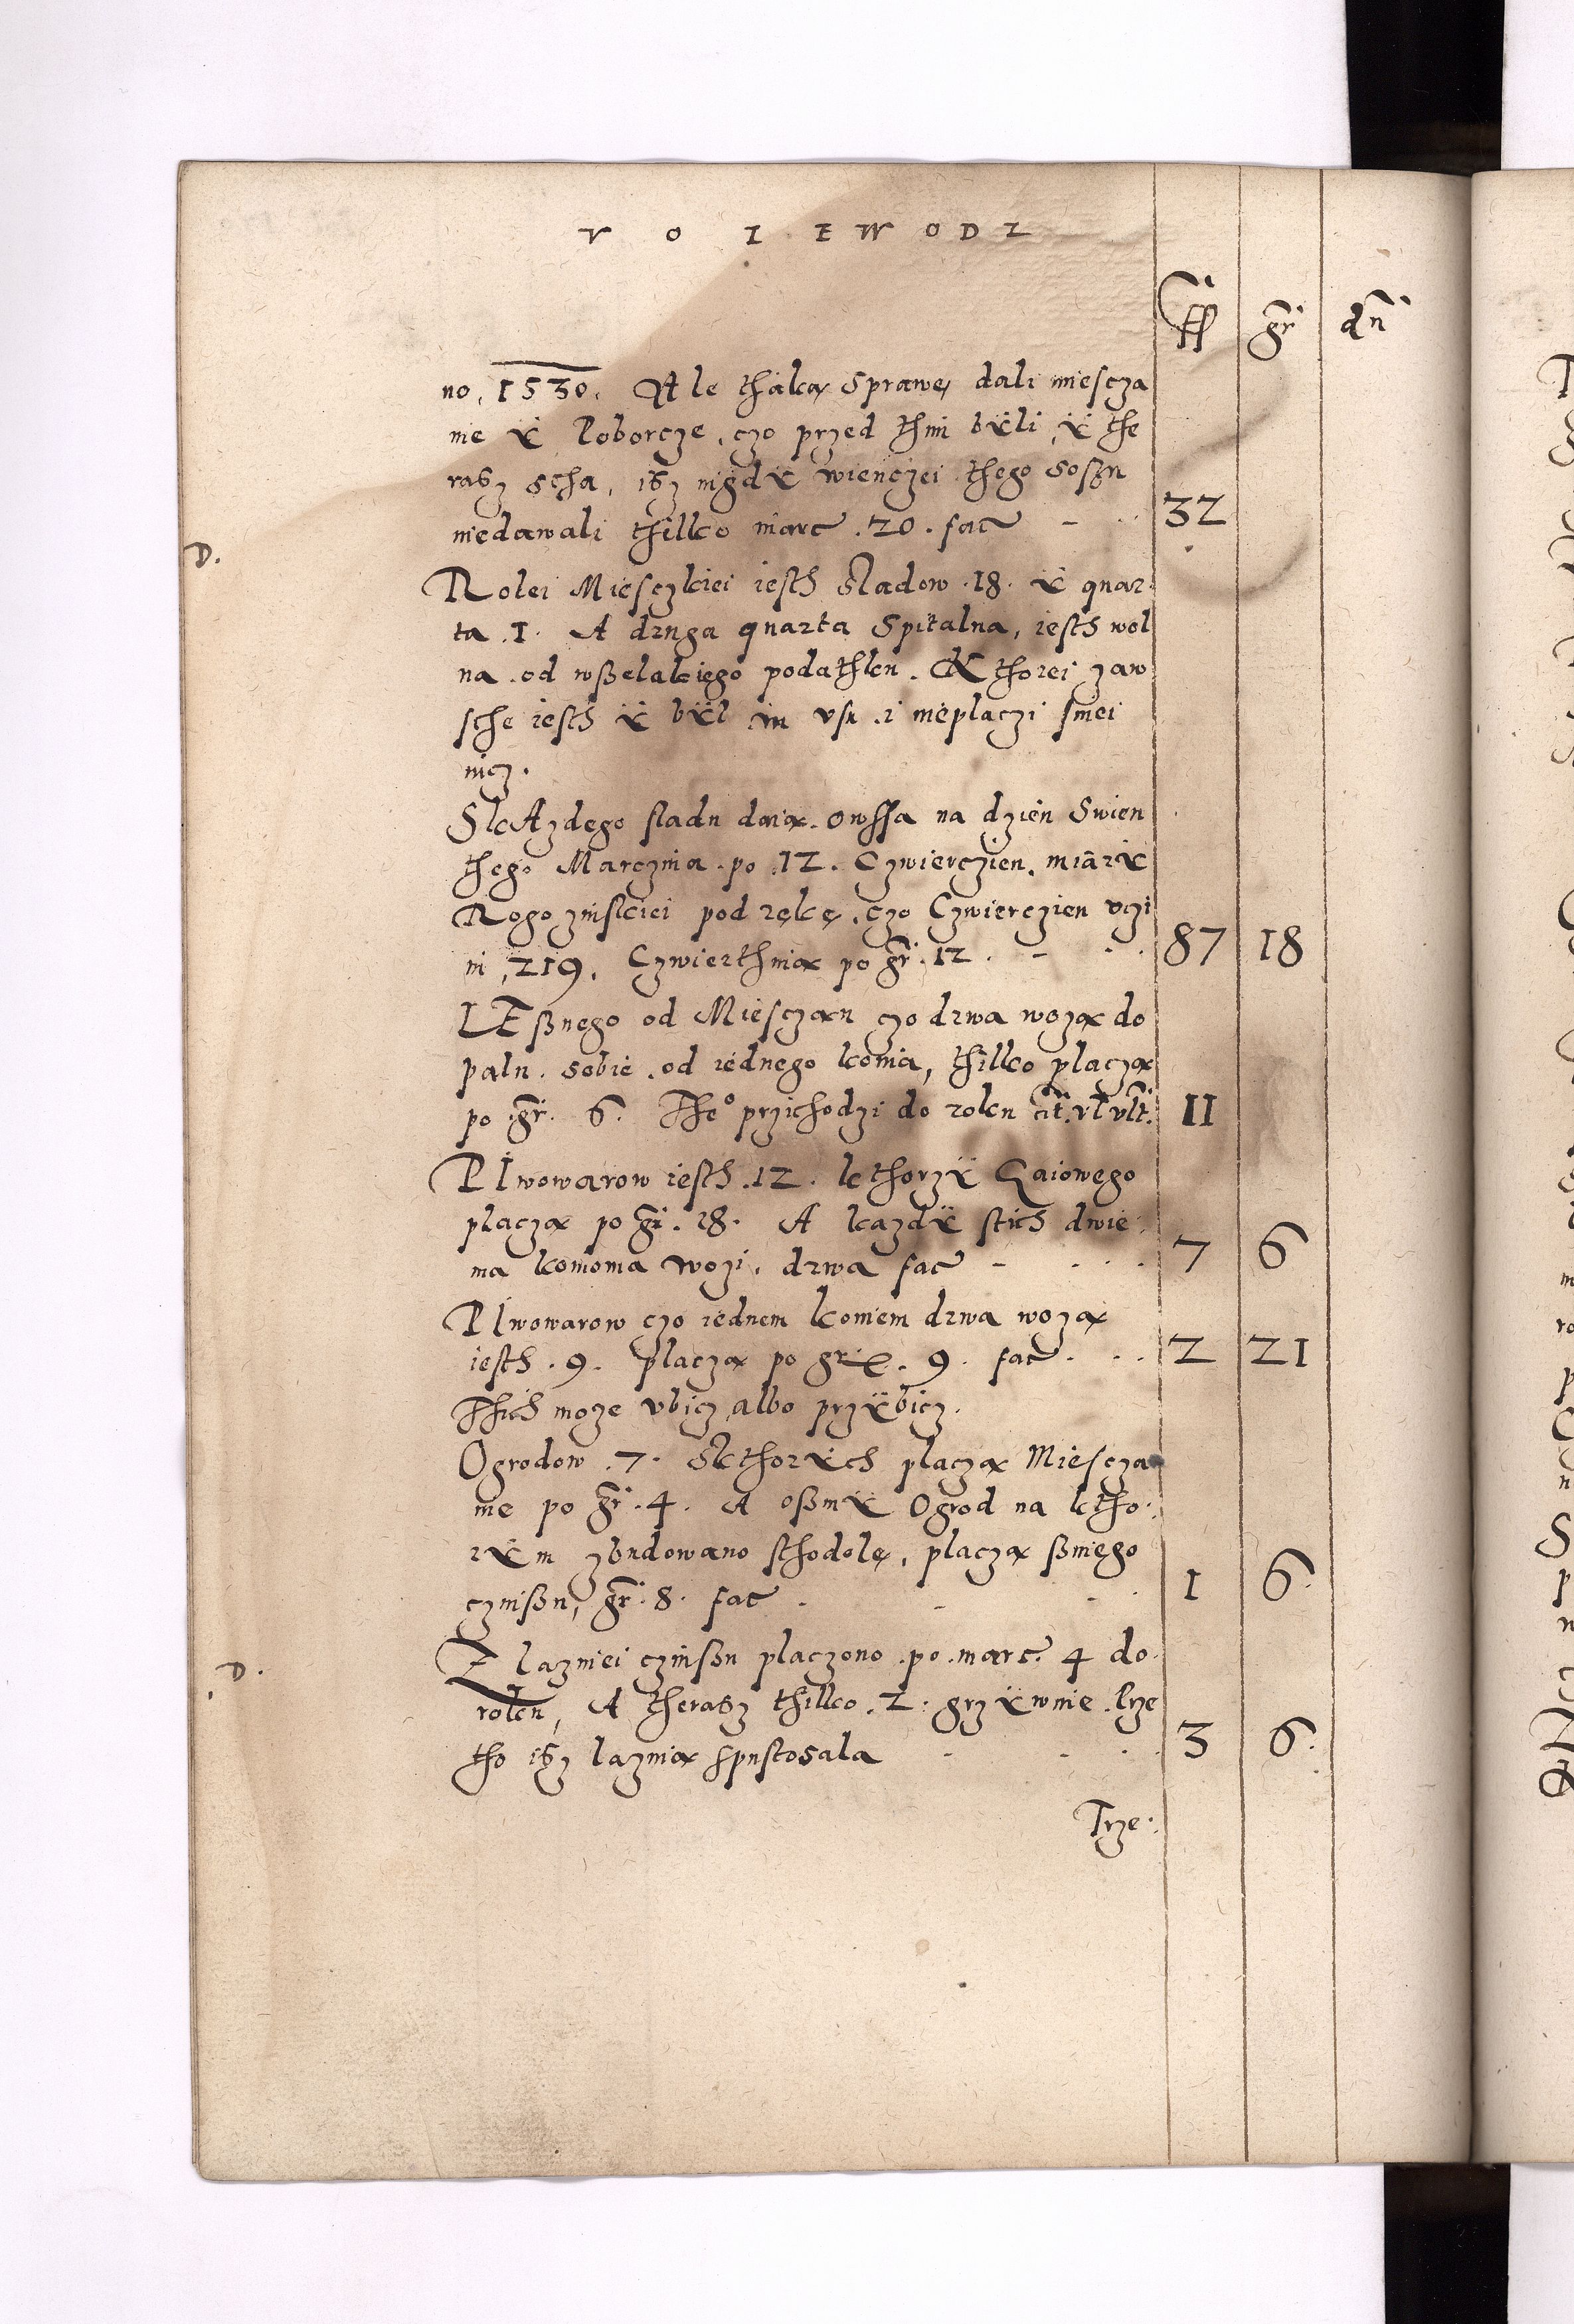 V O I E W O D Z
ff gr dn
no, 1530. Ale thaką sprawę dali miescza
nie ÿ Poborcze, czo przed thim bÿli, ÿ the
rasz scha, isz nigdÿ wienczei thego sossu
niedawali thilko marc .20. fac - 32
D.
Rolei Miesczkiei iesth sladow .18. ÿ quar
ta .1. A druga quarta Spitalna, iesth wol
na od wßelakiego podathku. Kthorei zaw
sche iesth ÿ bÿl in vsu i nieplaczi sniei
nicz.
SkAzdego sladu daią owssa na dzien Swien
thego Marczina po .12. Czwierczien, miarÿ
Rogozinskiei pod rękę, czo Czwierczien vczi
ni ,219. Czwierthnią po gr. 12. - 87 18
LEßnego od Miesczan czo drwa wożą do
palu sobie od iednego konia, thilko placzą
po gr. 6. Theo przichodzi do roku cit. vl vlt. 11
PIwowarow iesth .12. kthorzÿ Gaiowego
placzą po gr. 18. A kazdÿ stich dwie
ma konioma wozi, drwa fac - 7 6
PIwowarow czo iednem koniem drwa wożą
iesth .9. placzą po gr. 9. fac. 2 21
Thich moze vbicz albo przÿbicz.
Ogrodow .7. Skthorÿch placzą Miescza
nie po gr. 4. A oßmÿ Ogrod na ktho
rÿm zbudowano sthodolę, placzą ßniego
czinßu, gr. 8. fac . - 1 6
D.
Z lazniei czinßu placzono po marc. 4 do
roku, A therasz thilko .2. grzÿwnie. Prze
tho isz laznia spustosala - 3 6
Trze